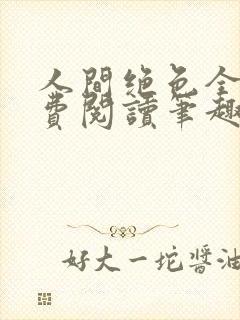 人間絶色全
費閱讀筆趣
好大一坨醬油